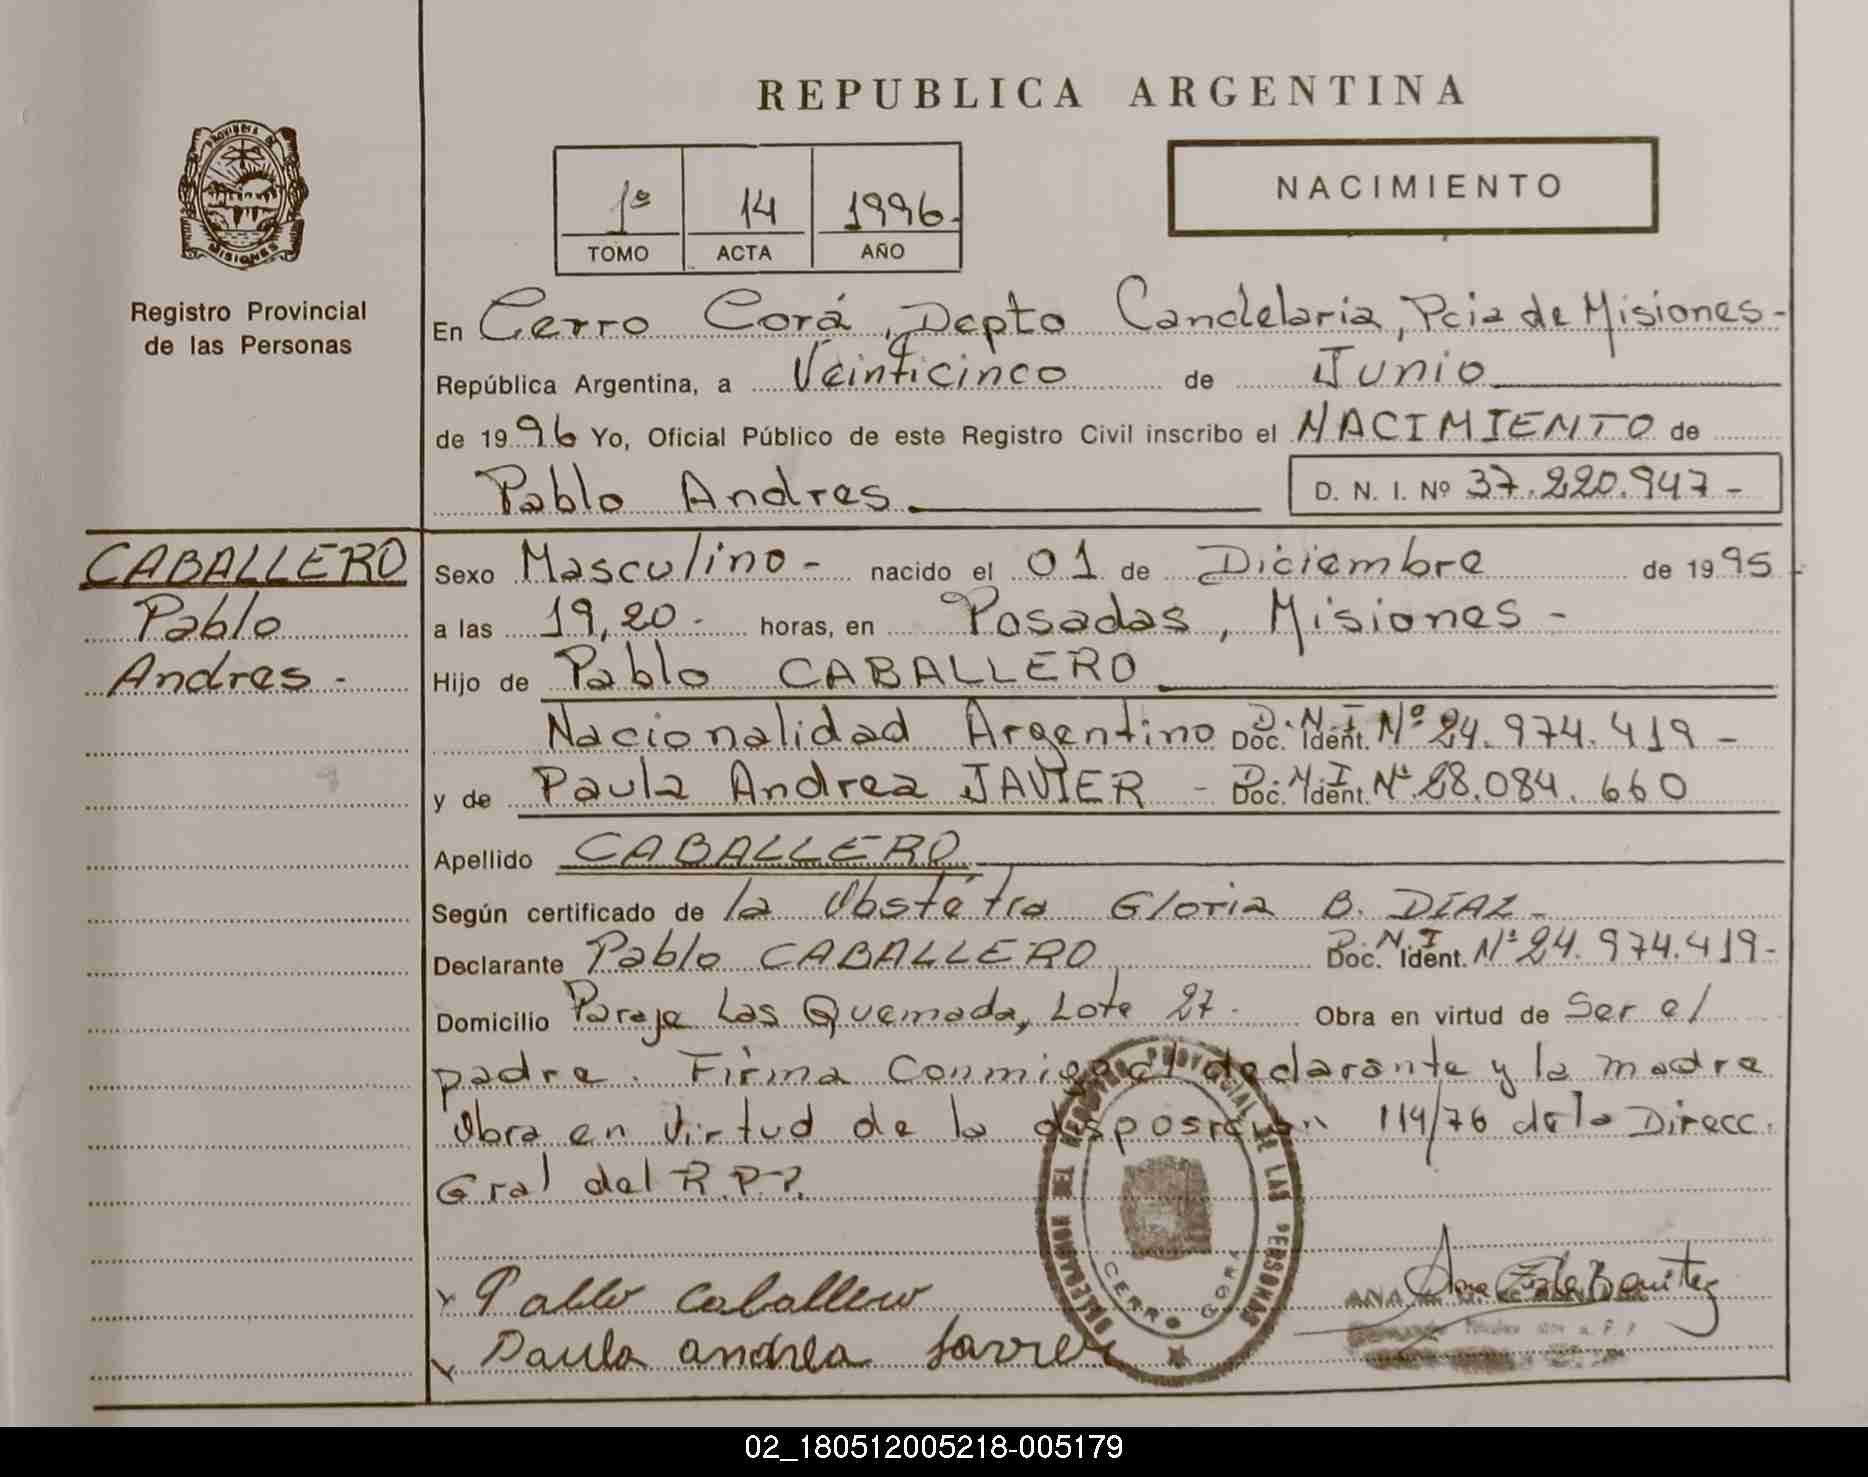 REPUBLICA ARGENTINA
PROVINCIA DE
MISIONES
Registro Provincial
de las Personas
1º 14 1996.
TOMO ACTA AÑO
NACIMIENTO
En Cerro Corá, Depto Candelaria, Pcia de Misiones-
República Argentina, a Veinticinco de Junio
de 1996 Yo, Oficial Público de este Registro Civil inscribo el NACIMIENTO de
Pablo Andres D. N. I. Nº 37.220.947-
CABALLERO
Pablo
Andres.-
Sexo Masculino- nacido el 01 de Diciembre de 1995
a las 19,20- horas, en Posadas, Misiones-
Hijo de Pablo CABALLERO
Nacionalidad Argentino D.N.I Doc. Ident. Nº 24.974.419-
y de Paula Andrea JAVIER - D.N.I Doc. Ident. Nº 28.084.660
Apellido CABALLERO
Según certificado de la Obstétra Gloria B. DIAZ-
Declarante Pablo CABALLERO D.N.I Doc. Ident. Nº 24.974.419-
Domicilio Paraje Las Quemada, Lote 27- Obra en virtud de Ser el
padre. Firma Conmigo el declarante y la madre
Obra en Virtud de la disposición 114/76 de la Direcc.
Gral del R.P.P.
REGISTRO PROVINCIAL DE LAS PERSONAS
CERRO CORA
Pablo Caballero
Paula andrea Javier
ANA
02_180512005218-005179